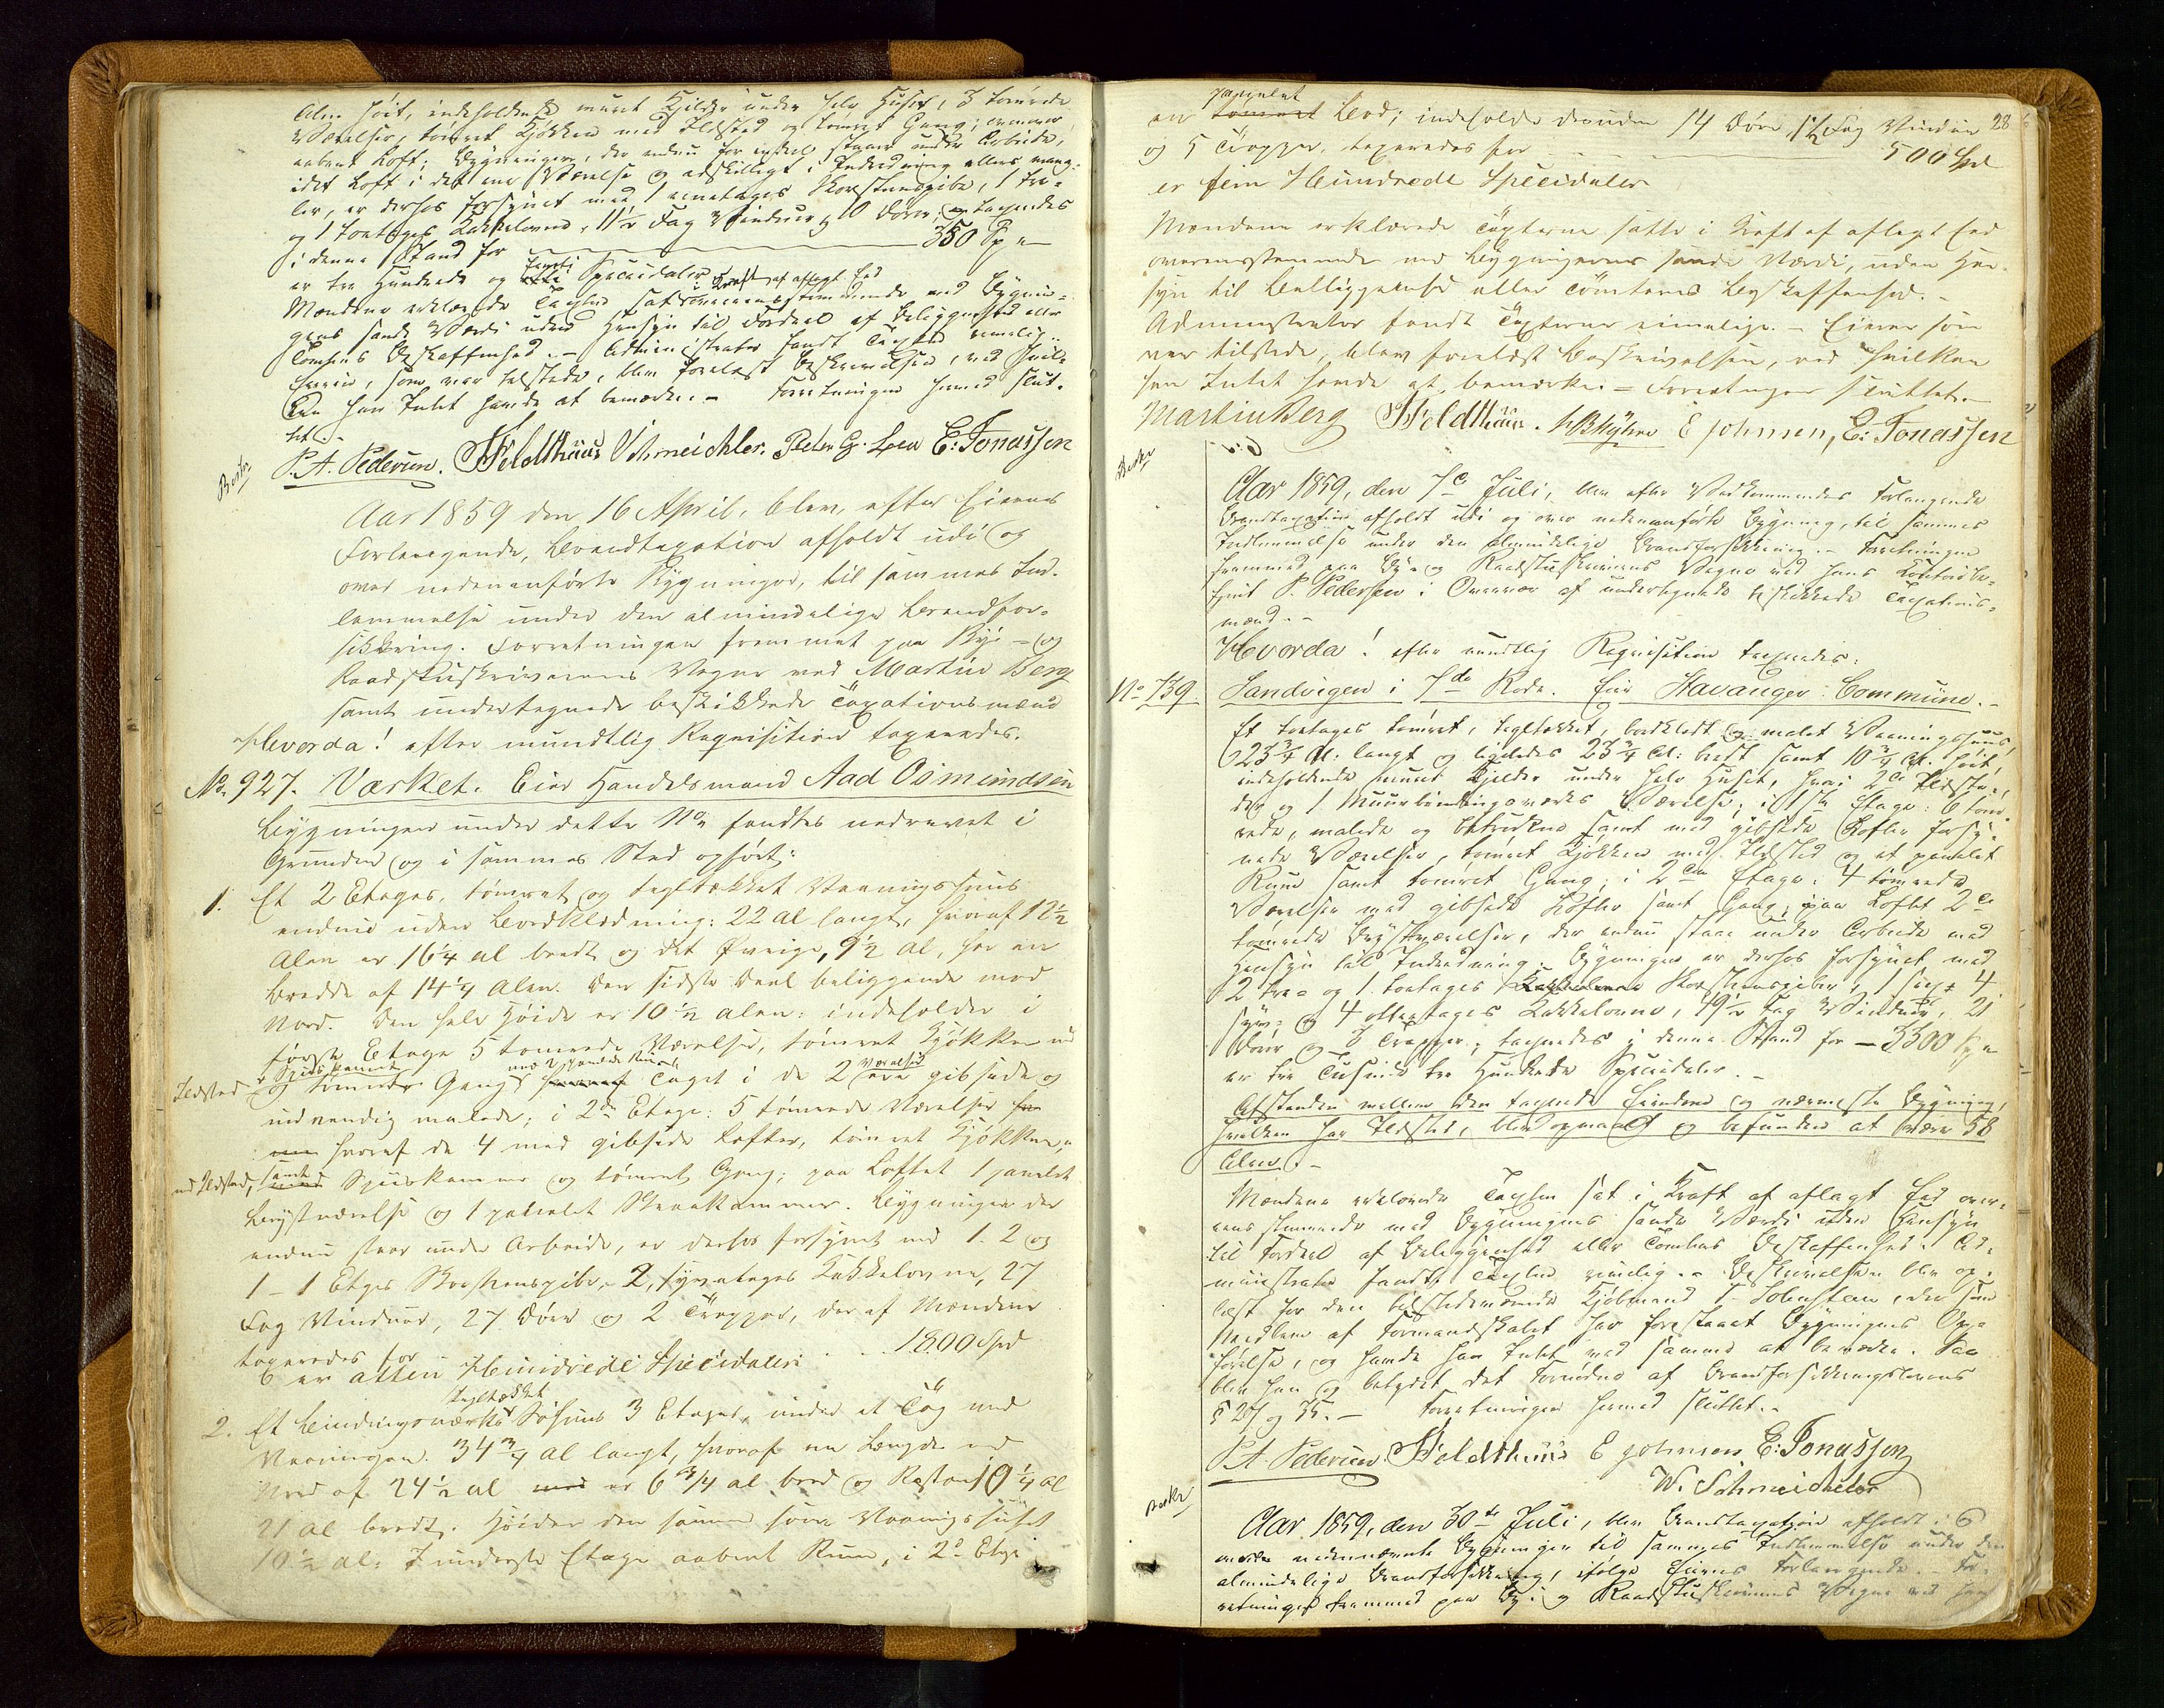 Alen høit, indeholdende muret Kjelder under hele Huset, 3 tømrede
Værelser, tømret Kjøkken med Ildsted og tømret Gang; ovenover
aabent Loft; Bygningen, der endnu for endeel staaer under Arbeide,
idet Loft i det ene Værelse og adskilligt i Indredning ellers mang-
ler, er derhos forsynet med 1 eenetages Skorsteenspibe, 1 tre-
og 1 toetages Kakkelovne, 11½ Fag Vinduer og 10 Døre, og taxeredes
i denne Stand for 350 Sp
er tre Hundrede og femti Speciedaler i Kraft af aflagt Eed
Mændene erklærede Taxten sat overeensstemmende med Bygnin-
gens sande Værdi uden Hensyn til Fordeel af Beliggenhed eller
Tomtens Beskaffenhed. - Administrator fandt Taxten rimelig.
Eieren, som var tilstede, blev forelæst Beskrivelsen, ved hvil-
ken han Intet havde at bemærke. - Forretningen hermed slut-
tet. -
P. A. Pedersen. Feldthuus Schmeichler. Peter G. Loen E: Jonassen
Beskr
Aar 1859 den 16 April, blev, efter Eierens
Forlangende, Brandtaxation afholdt udi og
over nedenanførte Bygninger, til sammes Ind-
lemmelse under den almindelige Brandfor-
sikkring. Forretningen fremmet paa Bÿe- og
Raadstueskriverens Vegne ved Martin Berg
samt undertegnede beskikkede Taxationsmænd
Hvorda! efter mundtlig Requisition taxeredes.
No. 927. Værket. Eier Handelsmand Aad Osmundsen
Bygningen under dette No fandtes nedrevet i
Grunden og i sammes Sted opført:
1. Et 2 Etages, tømret og tegltækket Vaaningshuus
endnu uden Bordklædning: 22 Al langt, hvoraf 12½
Alen er 16¼ Al bredt og det Øvrige, 9½ Al, har en
Bredde af 14¼ Alen. Den sidste Deel beliggende mod
Nord. Den hele Høide er 10½ Alen: indeholder i
første Etage 5 tømrede Værelser, tømret Kjøkken med
Ildsted og Spiiskammer tømret Gang med 2 panelede Ruum Taget i de 2 Værelser gibsede og
indvendig malede; i 2den Etage: 5 tømrede Værelser
hvoraf de 4 med gibsede Lofter, tømret Kjøkken
med Ildsted, samt Spiiskammer og tømret Gang; paa Loftet 1 panelet
Brystværelse og 1 panelet Skraakammer. Bygningen der
endnu staar under Arbeide, er derhos forsynet med 1. 2 og
1 - 1 Etges Skorstenspibe, 2, syvetages Kakkelovne, 27
Fag Vinduer, 27 Døre og 2 Trapper, der af Mændene
taxeredes for 1800 Spd
er atten Hundrede Speciedaler
2. Et Bindingsværks tegltækket Søhuus 3 Etager, under et Tag med
Vaaningen. 34¾ Al langt, hvoraf en Længde ved
Nord af 24½ Al er 6¾ Al bred og Resten 10¼ Al
21 Al bredt. Høiden den samme som Vaaningshuset
10½ Al. I underste Etage aabent Rum, i 2de Etge
28
en panelet Bod; indeholder desuden 14 Døre, 1½ Fag Vinduer
og 5 Trapper, taxeredes for 500 Spd
er fem Hundrede Speciedaler
Mændene erklærede Taxterne satte i Kraft af aflagt Eed
overensstemmende med Bygningernes sande Værdi, uden Hen-
syn til Belliggenhed eller Tomternes Beskaffenhed. -
Administrator fandt Taxterne rimelige. - Eieren som
var tilstede, blev forelæst Beskrivelsen, ved hvilken
han Intet havde at bemærke = Forretningen sluttet. -
Martin Berg Feldthuus. E Johnsen, E: Jonassen
Beskr
Aar 1859, den 7de Juli, blev efter Vedkommendes Forlangende
Brandtaxation afholdt udi og over nedenanførte Bygning, til sammes
Indlemmelse under den almindelige Brandforsikkring. - Forretningen
fremmed paa By- og Raadstueskriverens Vegne ved hans Contoirbe-
tjent P. Pedersen i Overvær af undertegnede beskikkede Taxations-
mænd. -
Hvorda! efter mundtlig Requisition taxeredes:
No 739. Sandvigen i 7de Rode. Eier Stavanger Commune. -
Et toetages tømret, tegltækket, bordklædt og malet Vaaningshuus,
23¾ Al: langt og ligeledes 23¾ Al: bredt samt 10¾ Al. høit,
indeholdende muret Kjelder under hele Huset, hvori 2de Ildste-
der og 1 Muurbindingsværks Værelse; i 1ste Etage: 6 tøm-
rede, malede og betrukne samt med gibsede Lofter forsy-
nede Værelser, tømret Kjøkken med Ildsted og et panelet
Rum samt tømret Gang; i 2den Etage: 4 tømrede
Værelser med gibsede Lofter samt Gang; paa Loftet 2de
tømrede Brystværelser, der endnu staae under Arbeide med
Hensyn til Indredning. Bygningen er derhos forsynet med
2 tre- og 1 toetages Skorsteenspiber, 1 sex- 4
syv- og 4 otteetages Kakkelovne, 49½ Fag Vinduer, 21
Døre og 3 Trapper; taxeredes i denne Stand for - 3300 Sp
er tre Tusinde tre Hundrede Speciedaler. -
Afstanden mellem den taxerede Eiendom og nærmeste Bygning,
hvilken har Ildsted, blev opmaalt og befunden at være 58
Alen. -
Mændene erklærede Taxten sat i Kraft af aflagt Eed over-
eensstemmende med Bygningens sande Værdi uden Hensyn
til Fordeel af Beliggenhed eller Tomtens Beskaffenhed. Ad-
ministrator fandt Taxten rimelig. - Beskrivelsen blev op-
læst for den tilstedeværende Kjøbmand der som
Medlem af Formandskabet har forestaaet Bygningens Op-
førelse, og havde han Intet ved samme at bemærke. Saa
blev han og betydet det Fornødne af Brandforsikkringslovens
§ 27 og 35. - Forretningen hermed sluttet. -
P. A. Pedersen. Feldthuus E Johnsen E: Jonassen
W. Schmeichler
Beskr
Aar 1859, den 30de Juli, blev Brandtaxation afholdt i og
over nedennævnte Bygninger til sammes Indlemmelse under den
almindelige Brandforsikkring, ifølge Eierens Forlangende. For-
retningen fremmed paa By- og Raadstueskriverens Vegne ved hans